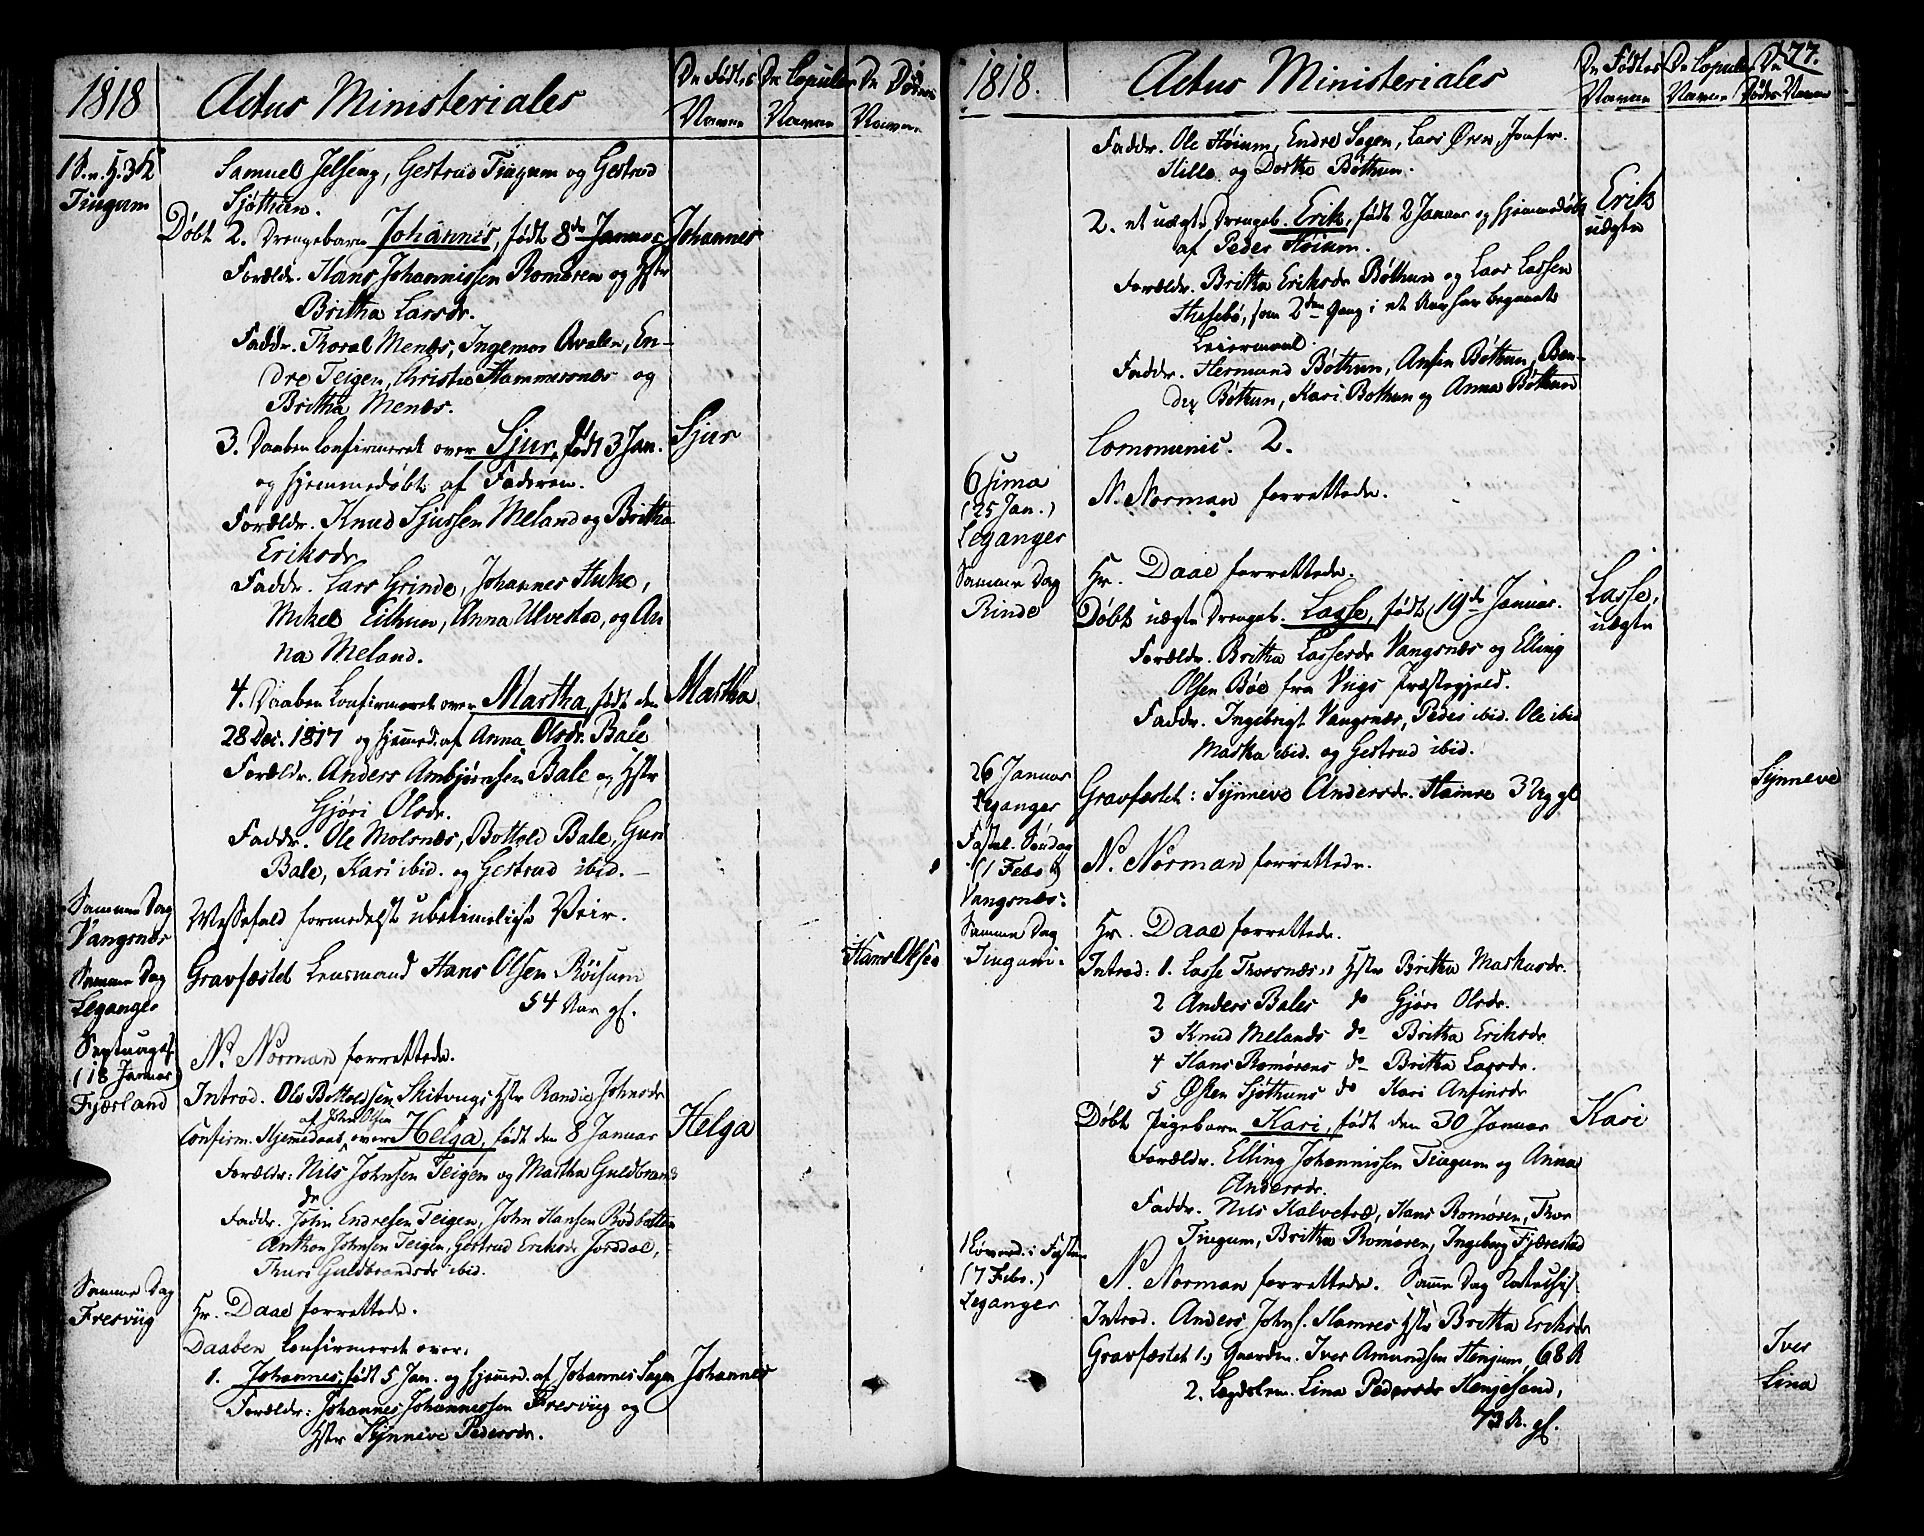 1818
Actus Ministeriales
De Fødtes Navne
De Copuler Navne
De Dødes Navne
1 S. n. H. 3 K
Tiugum
Samuel Jelseng, Gertrud Tiugum og Gertrud
Sjøthun.
Døbt 2. Drengebarn Johannes, født 8de Januar
Johannes
Forældr. Hans Johannissen Romøren og Hstr
Britha Larsdr.
Faddr. Thoral Menæs, Ingemor Qvalen, En-
dre Teigen, Christie Hammersnæs og
Britha Menæs.
3. Daaben Confirmeret over Sjur, født 3 Jan.
Sjur
og hjemmedøbt af Faderen.
Forældr. Knud Sjursen Meland og Britha
Eriksdr.
Faddr. Lars Grinde, Johannes Huke,
Mikel Eithun, Anna Ulvestad, og An
na Meland.
4. Daaben Confirmeret over Martha, født den
Martha
28 Dec. 1817 og hjemed. af Anna Olsdr. Bale
Forældr. Anders Ambjørnsen Bale og Hstr
Gjøri Olsdr.
Faddr. Ole Molsnæs, Bottold Bale, Guri
Bale, Kari ibid. og Gertrud ibid.
Samme Dag
Vangsnæs
Messefald formedelst ubetimeligt Veir.
Samme Dag
Leganger
Gravfæstet Lensmand Hans Olsen Røisum
54 Aar gl.
Hans Olsen
Septuages.
(18 Januar)
Fjærland
N. Norman forrettede.
Introd. Ole Bottoldsen Skitvugs Hstr Randie Johnsdr
af John Olsen
Confirm. Hjemedaab, over Helga, født den 8 Januar
Helga
Forældr: Nils Johnsen Teigen og Martha Guldbrands
dr
Faddr. John Endresen Teigen, John Hansen Bødbotten
Anthon Johnsen Teigen, Gertrud Eriksdr Jorddal,
Thuri Guldbrandsdr ibid.
Samme Dag
Fresviig
Hr. Daae forrettede.
Daaben Confirmeret over:
1. Johannes, født 5 Jan. og hjemed. af Johannes Sagen
Johannes
Forældr: Johannes Johannessen Fresviig og
Hstr Synneve Pedersdr.
1818.
Actus Ministeriales
De Fødtes Navne
De Copuler Navne
De Dødes Navne
77.
Faddr. Ole Høium, Endre Sagen, Lars Øren, Jomfr.
Hille og Dorthe Bøthun.
2. et uægte Drengeb. Erik, født 2 Januar og hjemmedøbt
Erik
uægte
af Peder Høium.
Forældr. Britha Eriksdr Bøthun og Lars Larsen
Thesebø, som 2den Gang i et Aar har begaaet
Leiermaal.
Faddr. Hermund Bøthun, Anfin Bøthun, Ben-
dix Bøthun, Kari Bøthun og Anna Bøthun
Communic. 2.
6 sima
(25 Jan.)
Leganger
N. Norman forrettede.
Samme Dag
Rinde
Hr. Daae forrettede.
Døbt uægte Drengeb. Lasse, født 19de Januar.
Lasse,
uægte
Forældr. Britha Lassesdr Vangsnæs og Elling
Olsen Bøe fra Viigs Præstegjeld.
Faddr. Ingebrigt Vangsnæs, Peder ibid. Ole ibid
Martha ibid. og Gertrud ibid.
26 Januar
Leganger
Gravfæstet: Synneve Andersdr. Hamre 3 Ug gl
Synneve
Fastel. Søndag
(1 Febr.)
Vangsnæs:
N. Norman forrettede.
Samme Dag
Tiugum.
Hr. Daae forrettede.
Introd: 1. Lasse Thorsnæs's Hstr Britha Markusdr.
2 Anders Bales do Gjøri Olsdr.
3 Knud Melands do Britha Eriksdr.
4 Hans Romørens do Britha Larsdr.
5 Østen Sjøthuns do Kari Anfinsdr
Døbt Pigebarn Kari, født den 30 Januar
Kari
Forældr. Elling Johannissen Tiugum og Anna
Andersdr.
Faddr. Nils Kalvetræ, Hans Romøren, Thor
Tiugum, Britha Romøren, Ingeborg Fjærestad
1 Løverd. i Fasten
(7 Febr.)
Leganger
N. Norman forrettede. Samme Dag
Introd. Anders Johns. Hamres Hstr Britha Eriksdr
Gravfæstet 1.) Gaardm. Iver Amundsen Henjum, 68 A
Iver
2. Lægdslem. Lina Pedersdr Henjesand,
Lina
73 A. gl.